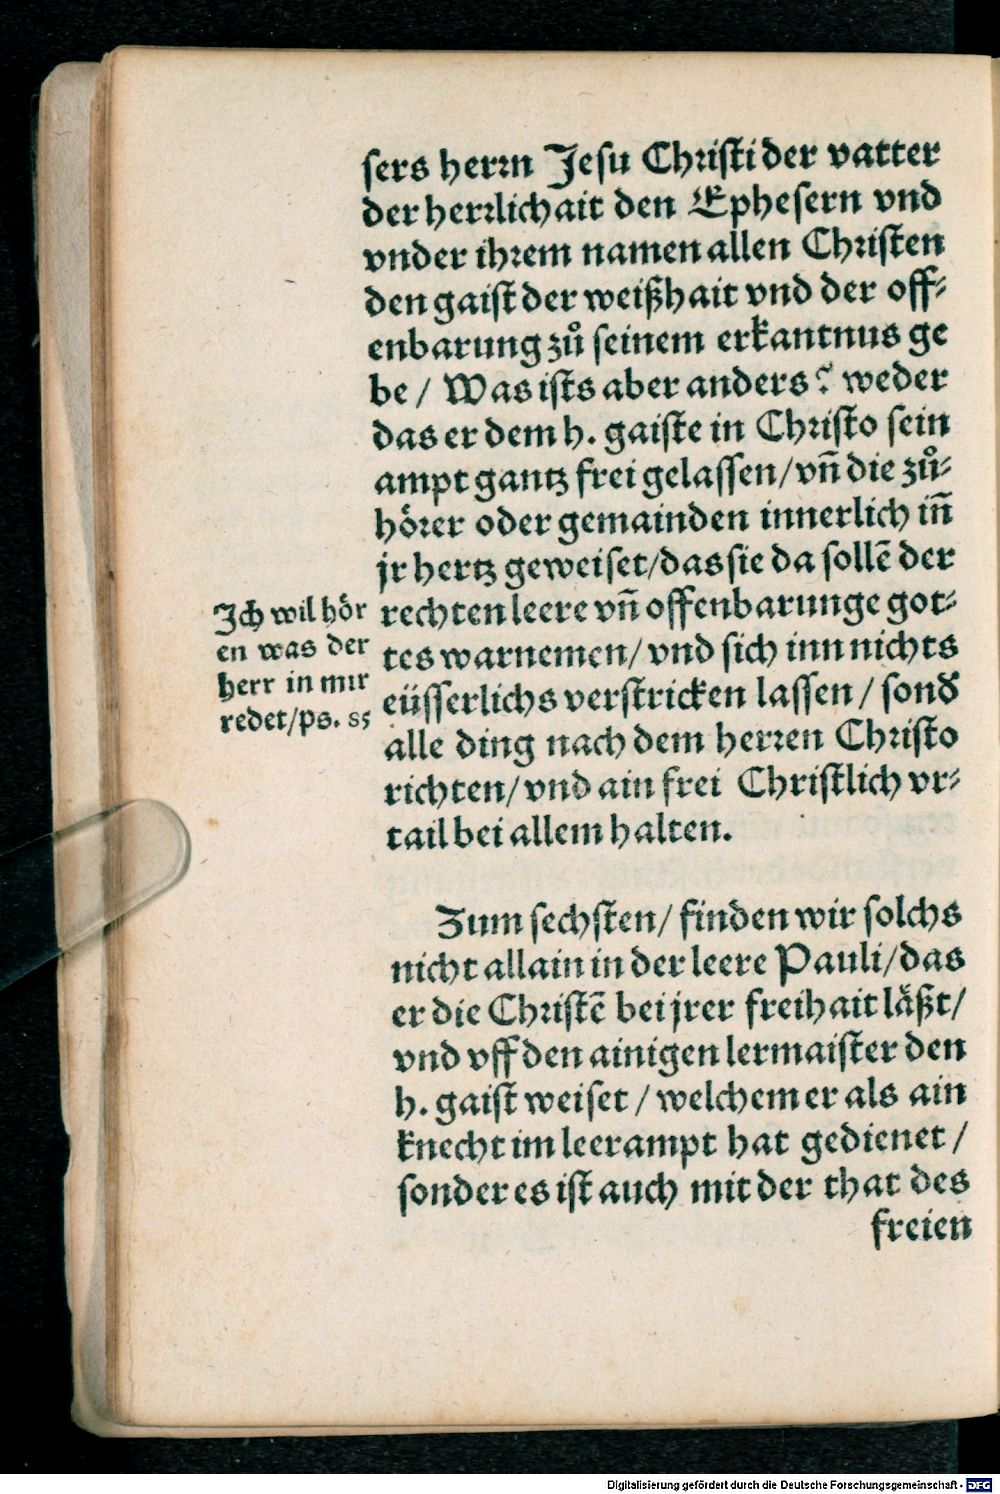 sers herrn Jesu Christi der vatter
der herrlichait den Ephesern vnd
vnder ihrem namen allen Christen
den gaist der weißhait vnd der off-
enbarung zů seinem erkantnus ge
be / Was ists aber anders? weder
das er dem h. gaiste in Christo sein
ampt gantz frei gelassen/ vñ die zů-
hörer oder gemainden innerlich iñ
jr hertz geweiset/das sie da sollē der
rechten leere vñ offenbarunge got-
tes warnemen/ vnd sich inn nichts
eüsserlichs verstricken lassen / sond
alle ding nach dem herren Christo
richten/ vnd ain frei Christlich vr-
tail bei allem halten.
Ich wil hör
en was der
herr in mir
redet/ps. 85
Zum sechsten/ finden wir solchs
nicht allain in der leere Pauli/das
er die Christē bei jrer freihait läßt/
vnd vff den ainigen lermaister den
h. gaist weiset / welchem er als ain
knecht im leerampt hat gedienet /
sonder es ist auch mit der that des
freien
Digitalisierung gefördert durch die Deutsche Forschungsgemeinschaft - DFG